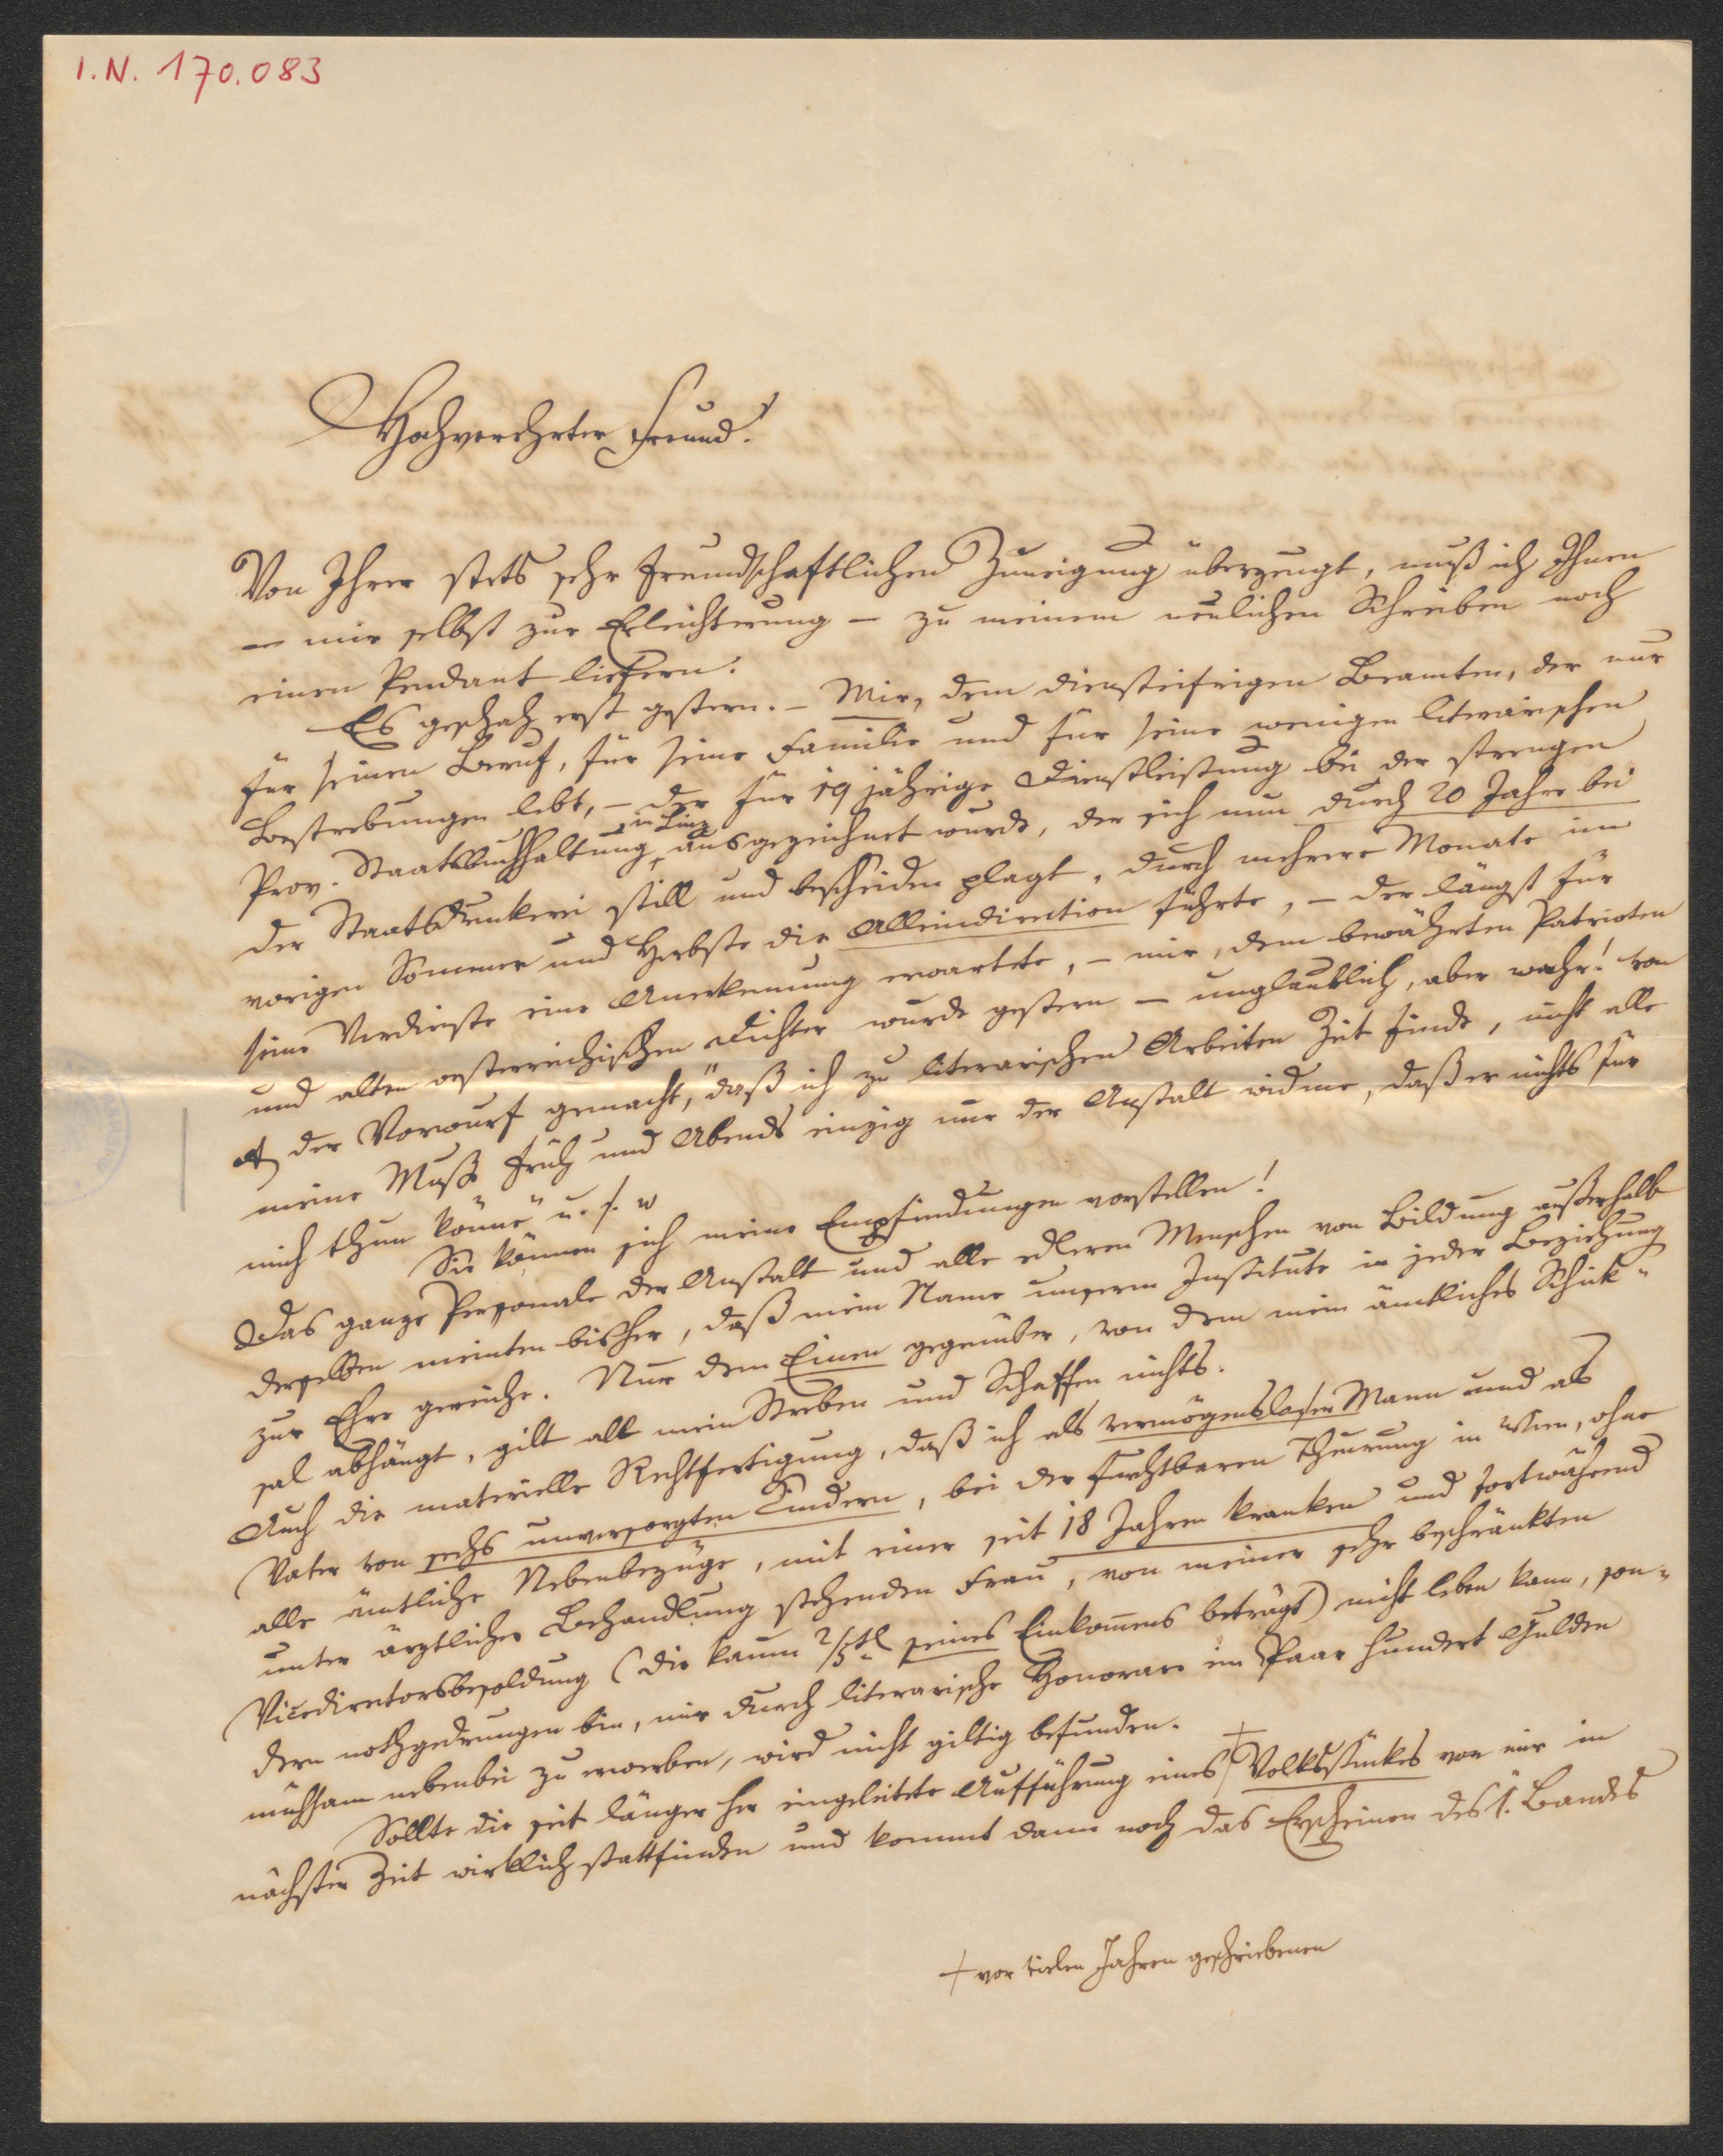 I.N. 170.083
Hochverehrter Freund!
Von Ihrer stets sehr freundschaftlichen Zuneigung überzeugt, muß ich Ihnen
– mir selbst zur Erleichterung – zu meinem neulichen Schreiben noch
einen Pendant liefern.
Es geschah erst gestern. – Mir, dem diensteifrigen Beamten, der nur
für seinen Beruf, für seine Familie und für seine wenigen literarischen
Bestrebungen lebt, – der für 19 jährige Dienstleistung bei der strengen
Prov. Staatsbuchhaltung in Linz ausgezeichnet wurde, der sich nun durch 20 Jahre bei
der Staatsdruckerei still und bescheiden plagt, durch mehrere Monate im
vorigen Sommer und Herbste die Alleindirection führte, – der längst für
seine Verdienste eine Anerkennung erwartete, – mir, dem bewährten Patrioten
und alten oesterreichischen Dichter wurde gestern – unglaublich, aber wahr! von
der Vorwurf gemacht, "daß ich zu literarischen Arbeiten Zeit finde, nicht alle
meine Muße früh und Abends einzig nur der Anstalt widme, daß er nichts für
mich thun könne" u. s. w
Sie können sich meine Empfindungen vorstellen!
Das ganze Personale der Anstalt und alle edleren Menschen von Bildung außerhalb
derselben meinten bisher, daß mein Name unserem Institute in jeder Beziehung
zur Ehre gereiche. Nur dem Einen gegenüber, von dem mein ämtliches Schick-
sal abhängt, gilt all mein Streben und Schaffen nichts.
Auch die materielle Rechtfertigung, daß ich als vermögensloser Mann und als
Vater von sechs unversorgten Kindern, bei der furchtbaren Theuerung in Wien, ohne
alle ämtliche Nebenbezüge, mit einer seit 18 Jahren kranken und fortwährend
unter ärztlicher Behandlung stehenden Frau, von meiner sehr beschränkten
Vicedirectorsbesoldung (die kaum 2/5tl seines Einkommens beträgt) nicht leben kann, son-
dern nothgedrungen bin, mir durch literarische Honorare ein Paar hundert Gulden
mühsam nebenbei zu erwerben, wird nicht giltig befunden.
Sollte die seit länger her eingeleitete Aufführung eines + Volksstückes von mir in
nächster Zeit wirklich stattfinden und kommt dann noch das Erscheinen des 1. Bandes
+ vor vielen Jahren geschriebenen